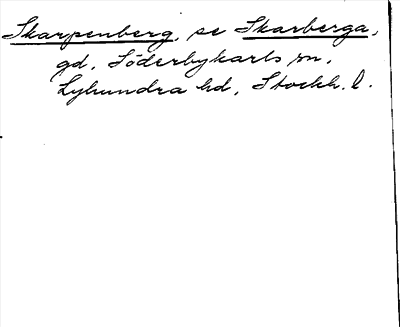 Skarpenberg, se Skarberga,
gd, Söderbykarls sn,
Lyhundra hd, Stockh. l.